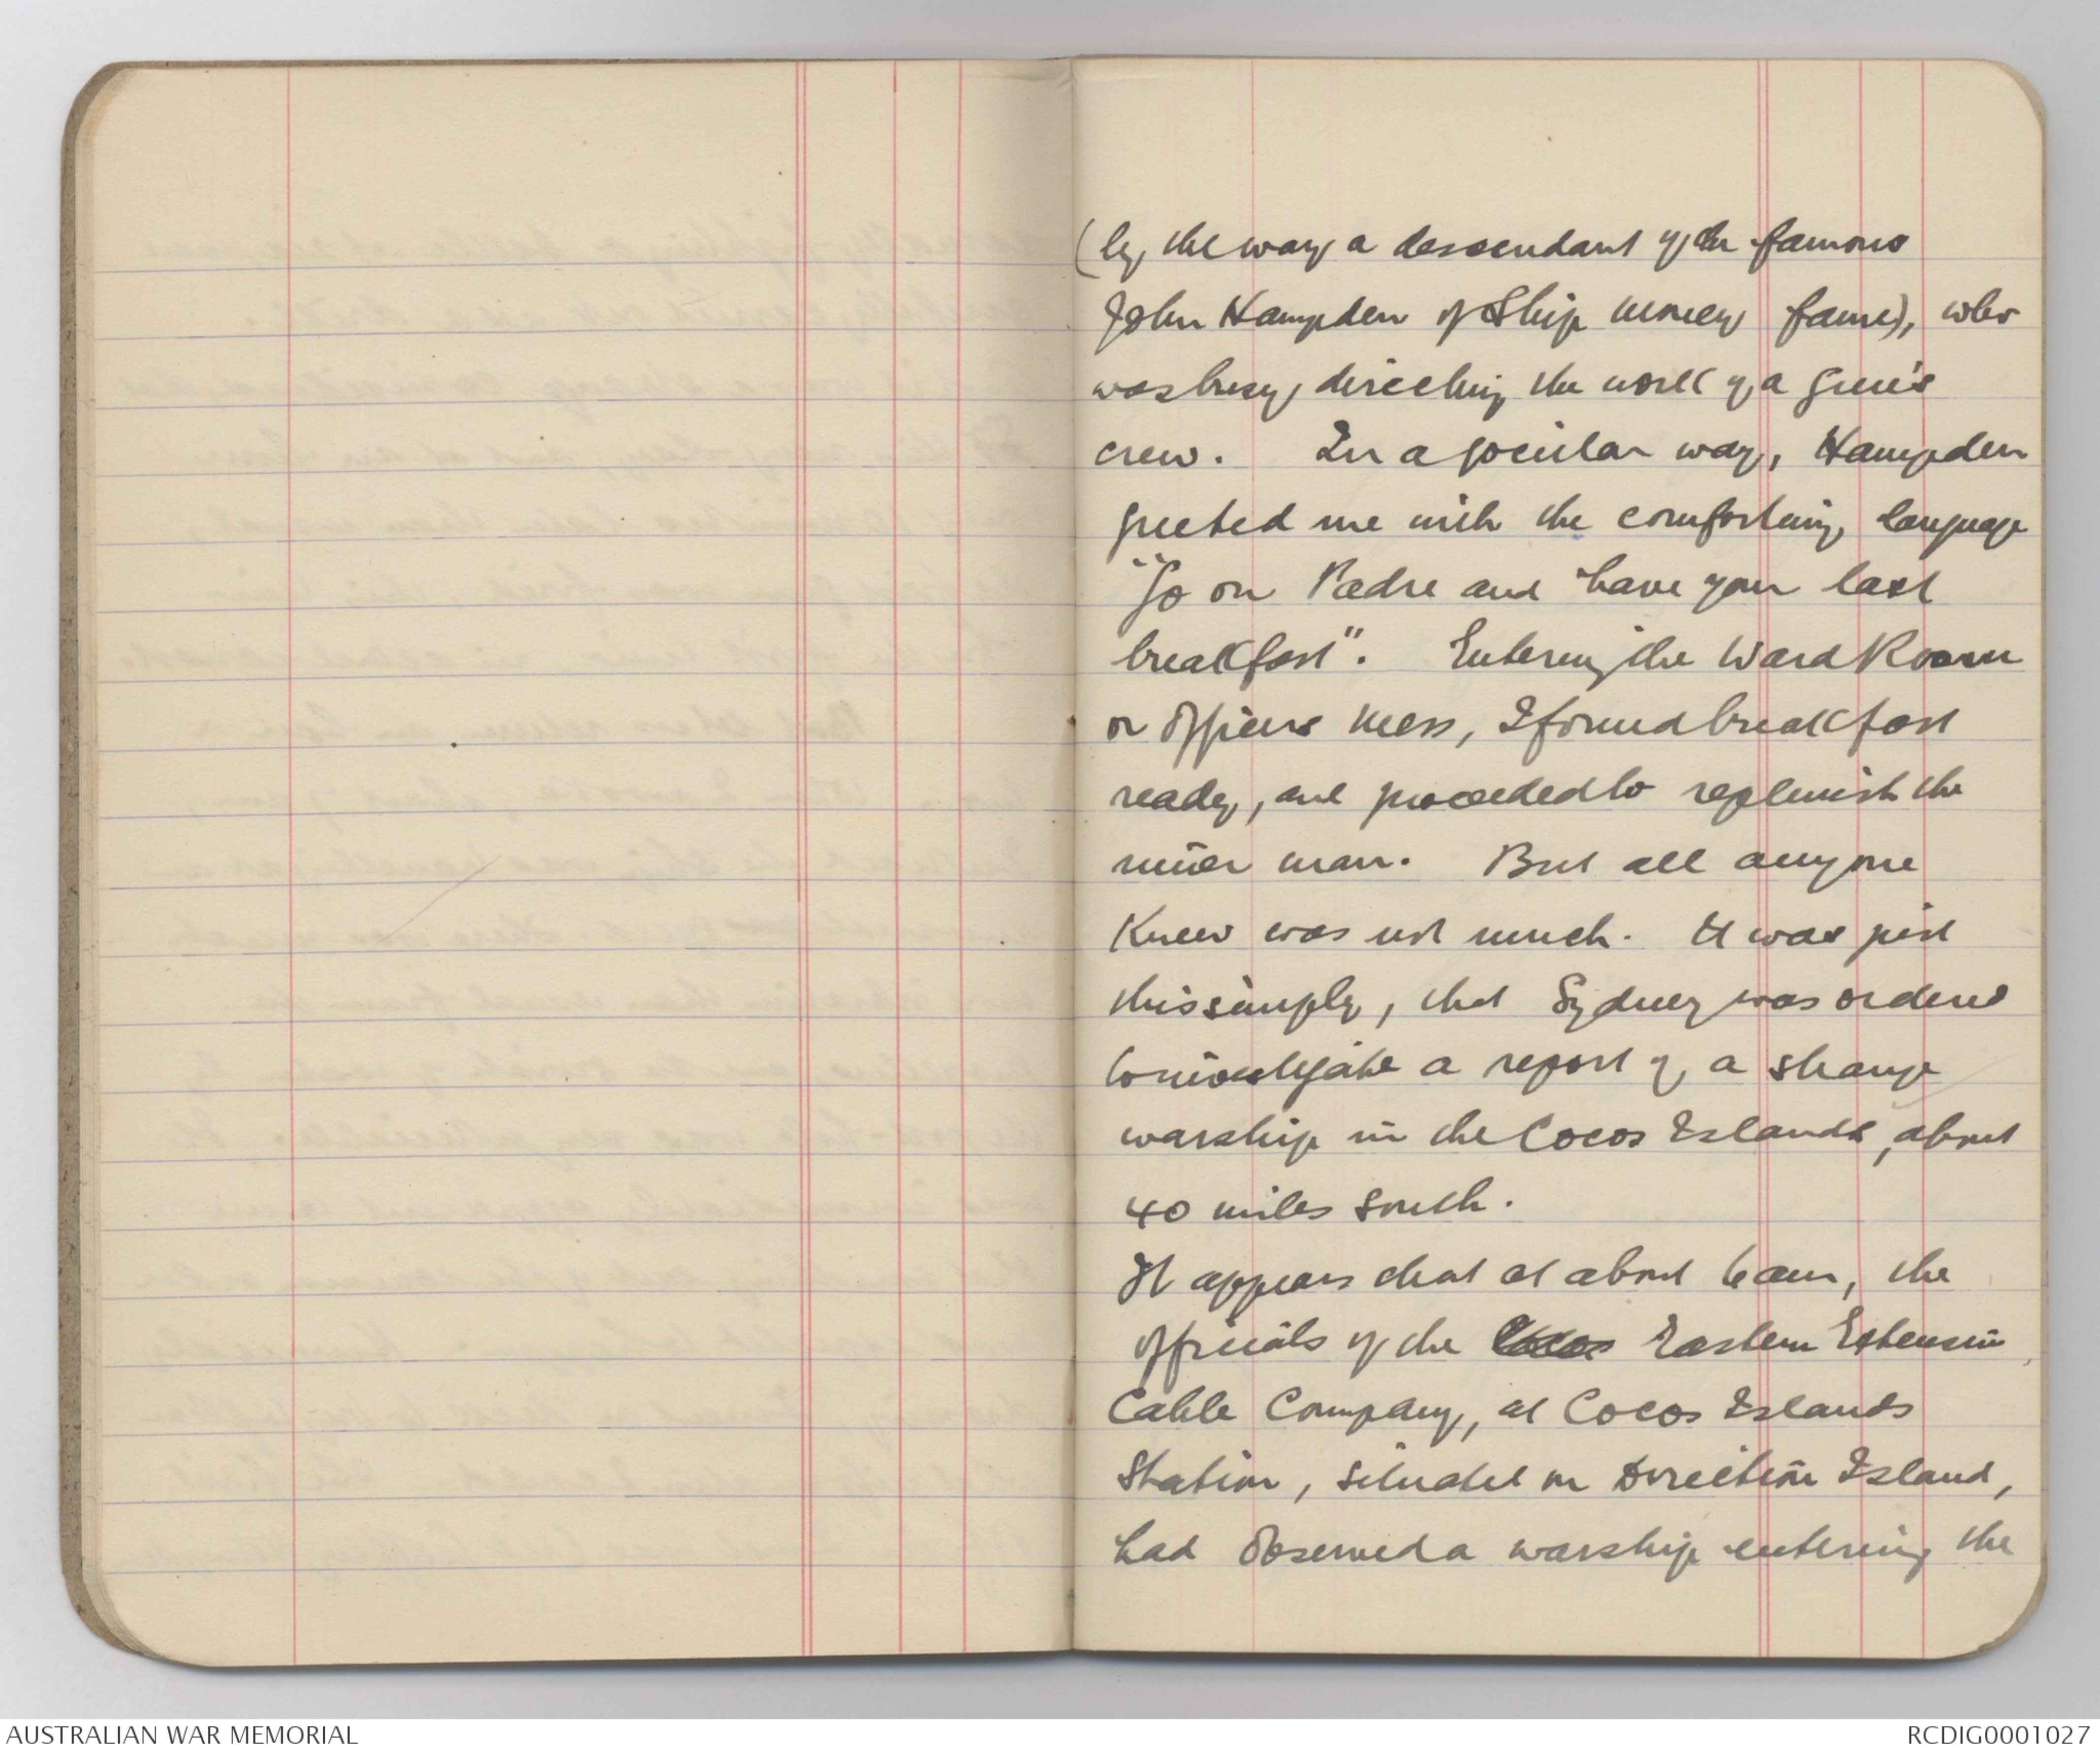 (by the way a descendant of the famous
John Hampden of Ship money fame), who
was busy directing the work of a gun's
crew. In a jocular way, Hampden
greeted me with the comforting language
"Go on Padre and have your last
breakfast". Entering the Ward Room
or Officers Mess, I found breakfast
ready, and proceeded to replenish the
inner man. But all anyone
knew was not much. It was just
this simply, that Sydney was ordered
to investigate a report of a strange
warship in the Cocos Islands, about
40 miles South.
It appears that at about 6 am, the
officials of the Eastern Extension
Cable Company, at Cocos Islands
Station, situated on Direction Island,
had observed a warship entering the
AUSTRALIAN WAR MEMORIAL
RCDIG0001027